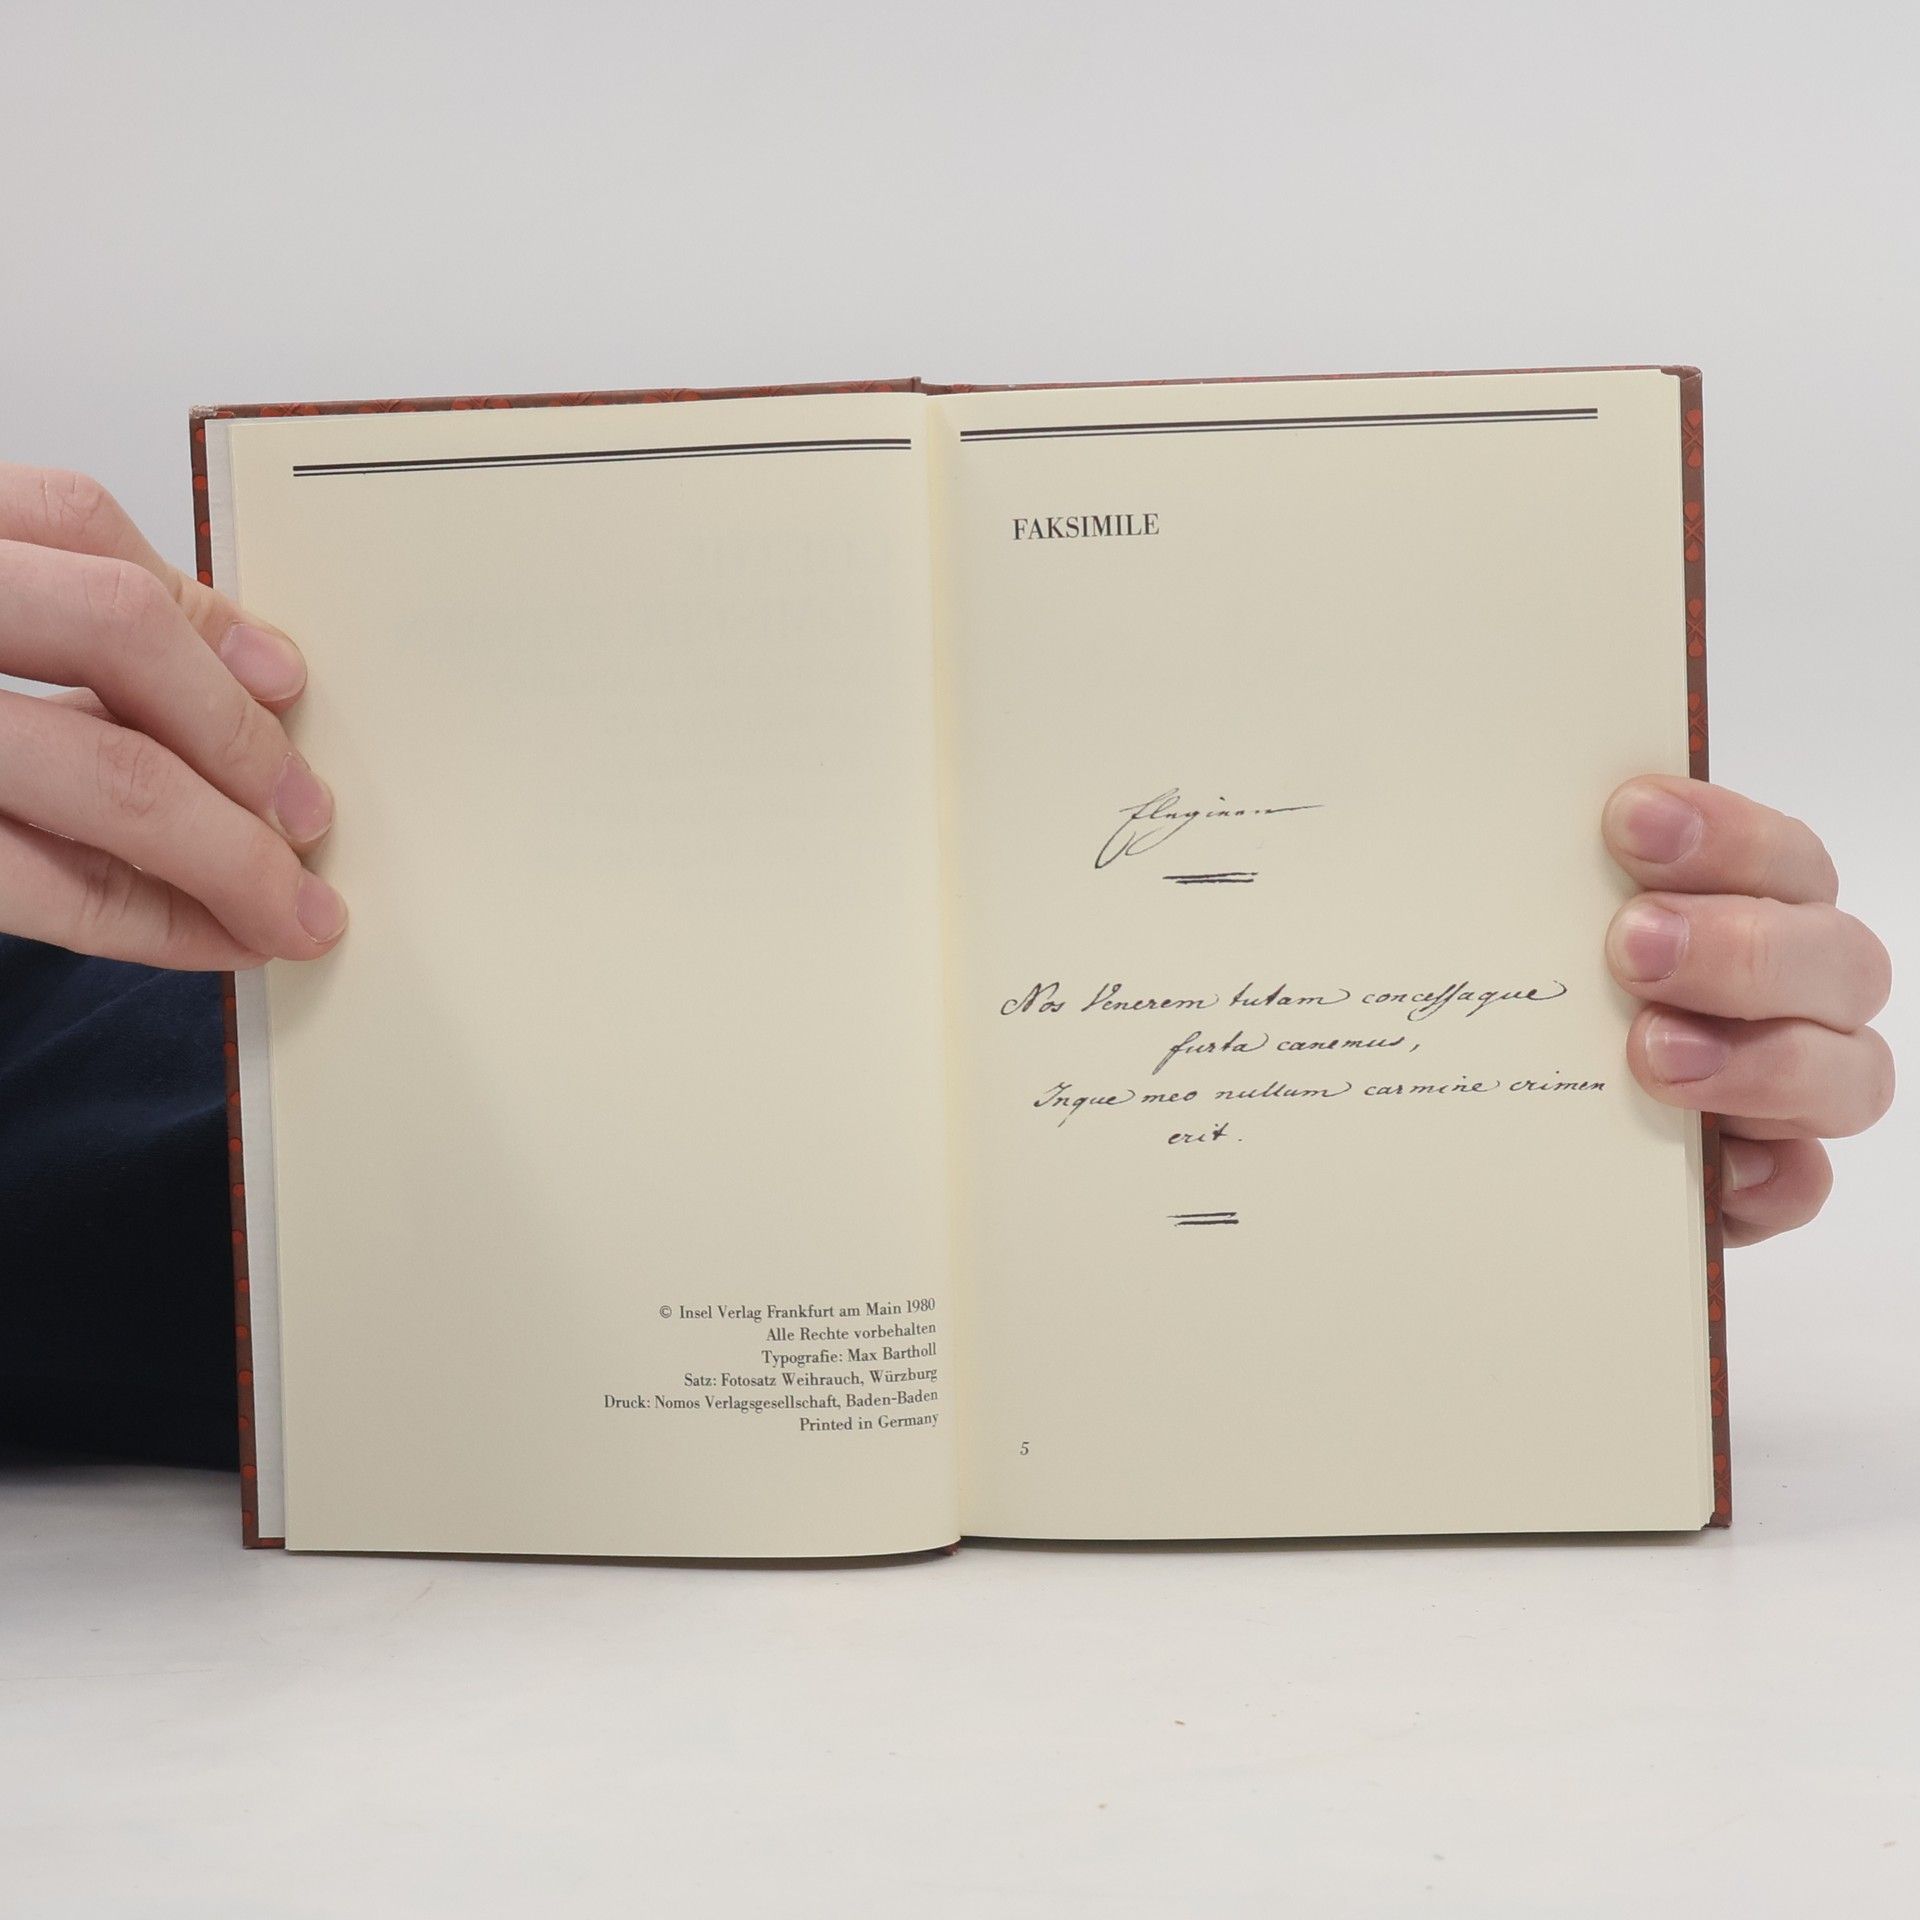 © Insel Verlag Frankfurt am Main 1980
Alle Rechte vorbehalten
Typografie: Max Bartholl
Satz: Fotosatz Weihrauch, Würzburg
Druck: Nomos Verlagsgesellschaft, Baden-Baden
Printed in Germany
FAKSIMILE
Elegieen
Nos Venerem tutam concessaque
furta canemus,
Inque meo nullum carmine crimen
erit.
5